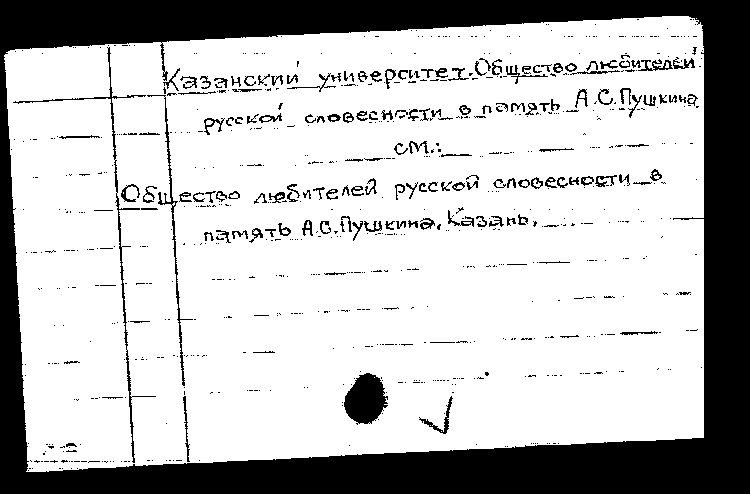 Казанский университет. Общество любителей
русской словесности в память А.С.Пушкина
см.:
Общество любителей русской словесности в
память А.С.Пушкина, Казань.